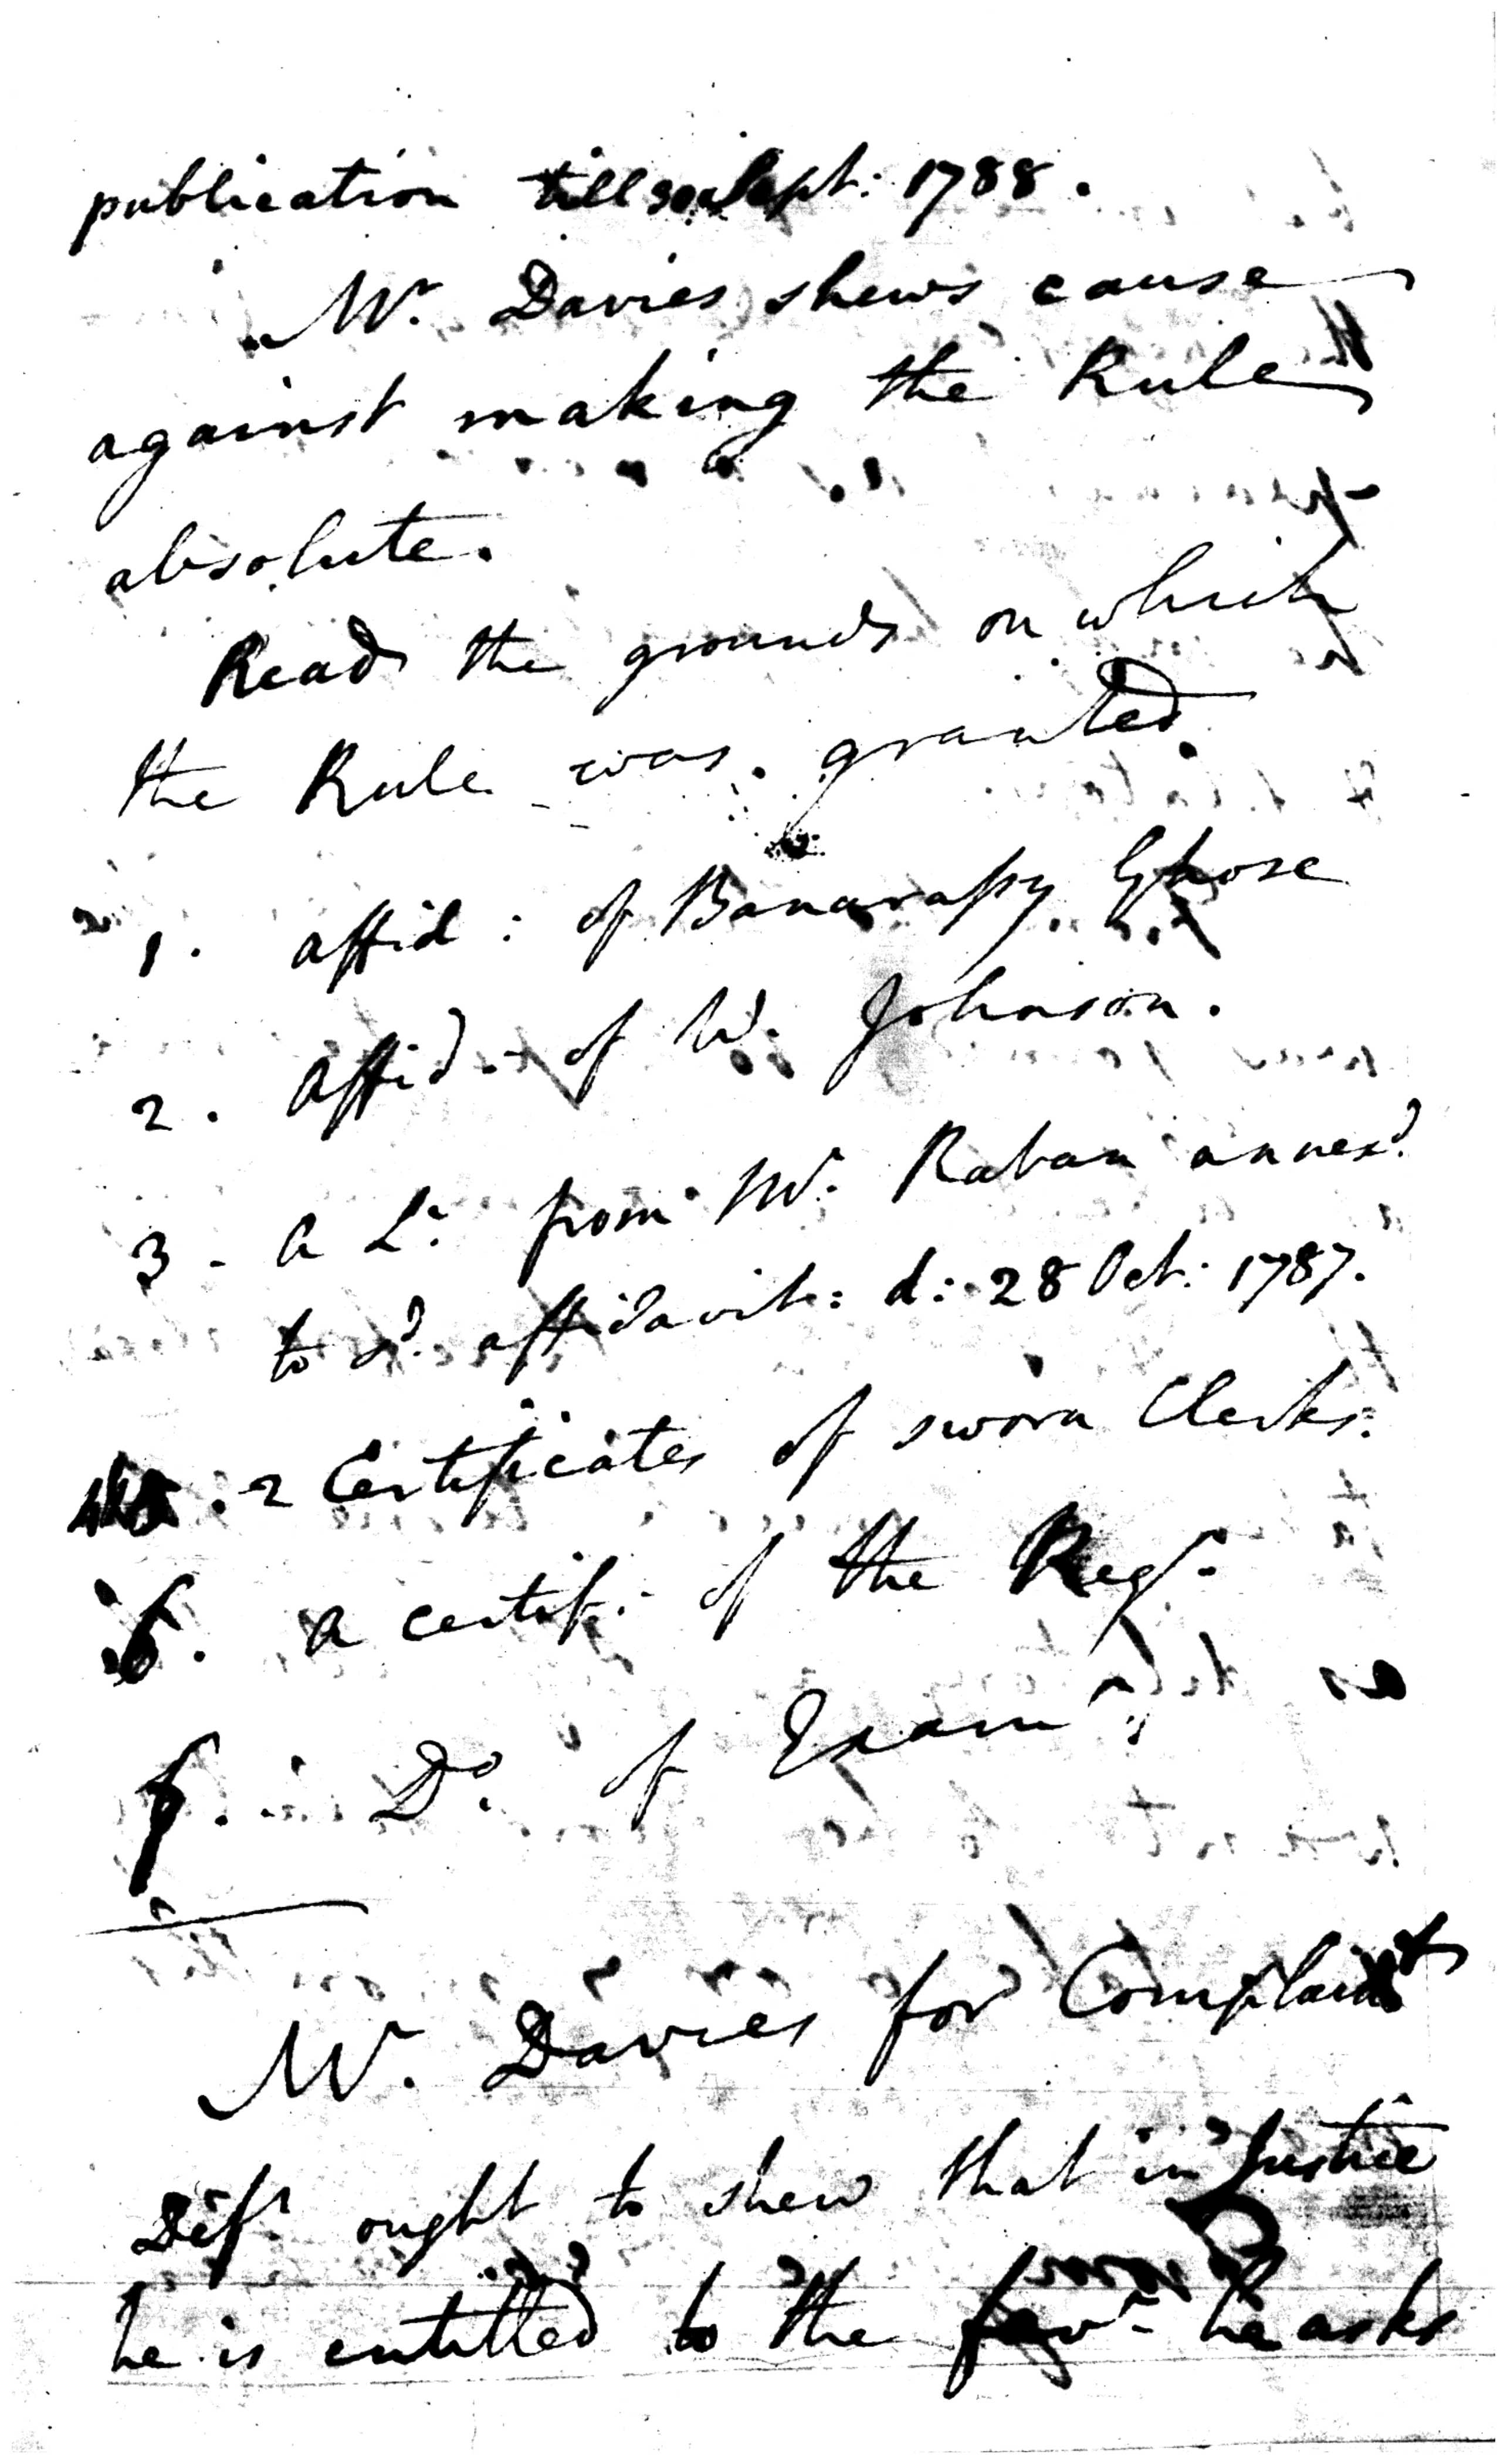 publication till 30 Sept: 1788.
Mr. Davies shews cause
against making the Rule
absolute.
Read the grounds on which
the Rule was granted.
1. affid: of Banarassy Ghose
2. affid. of W. Johnson.
3 - a Lr. from Mr. Raban annexd.
to sd. affidavit: d: 28 Oct: 1787.
. 2 Certificates of sworn Clerks.
. a certif. of the Regr.
. Do. of Examr.
Mr. Davies for Complaint
Deft ought to shew that in Justice
he is entitled to the favr. he asks